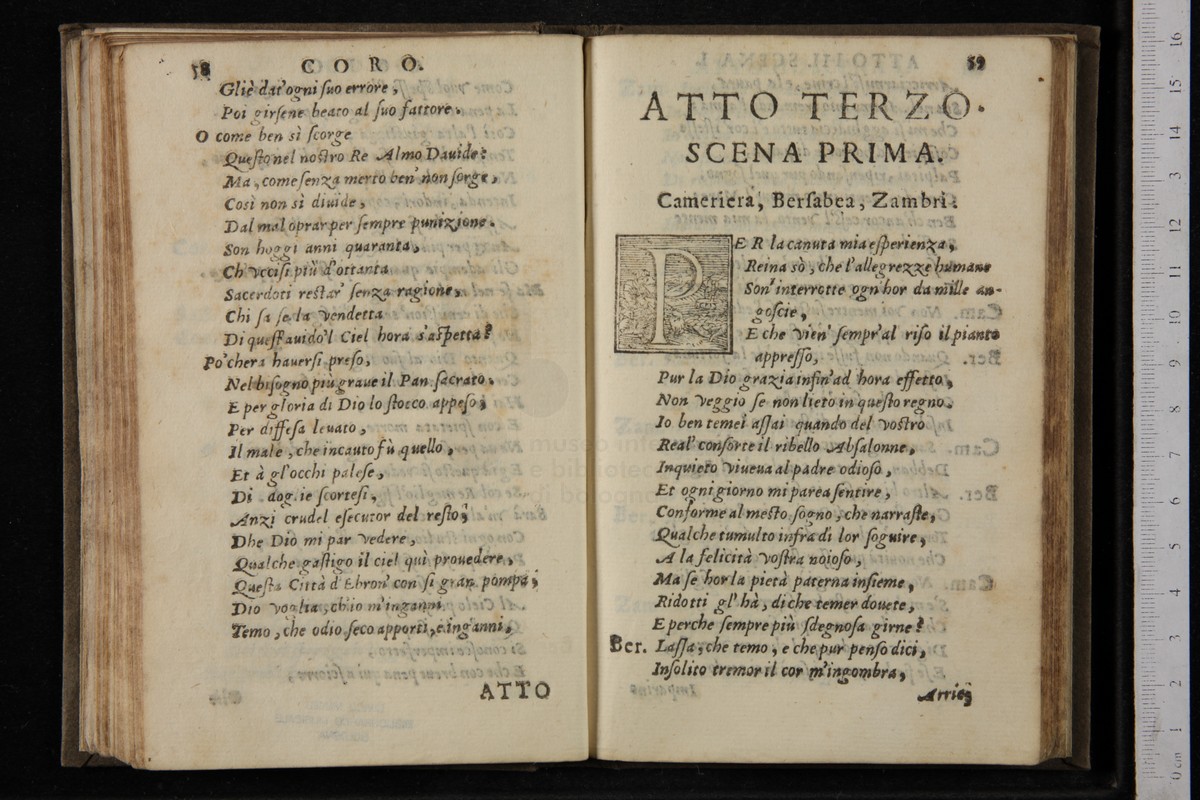 58
CORO.
Gliè dat'ogni suo errore,
Poi girsene beato al suo fattore.
O come ben sì scorge
Questo nel nostro Re Almo Dauide?
Ma, come senza merto ben' non sorge,
Così non sì diuide,
Dal mal oprar per sempre punizione.
Son hoggi anni quaranta,
Ch'vccisi più d'ottanta
Sacerdoti restar' senza ragione,
Chi sa se la vendetta
Di quest'auido'l Ciel hora s'aspetta?
Po'chera hauersi preso,
Nel bisogno più graue il Pan sacrato.
E per gloria di Dio lo stocco appeso;
Per diffesa leuato,
Il male, che incauto fù quello,
Et à gl'occhi palese,
Di dog.ie scortesi,
Anzi crudel esecutor del resto;
Dhe Dio mi par vedere,
Qualche gastigo il ciel quì prouedere,
Questa Città d'Ebron' con si gran pompa;
Dio voglia, ch'io m'inganni,
Temo, che odio seco apporti, e inganni,
ATTO
59
ATTO TERZO.
SCENA PRIMA.
Cameriera, Bersabea, Zambri.
PER la canuta mia esperienza,
Reina sò, che l'allegrezze humane
Son' interrotte ogn'hor da mille an-
goscie,
E che vien' sempr'al riso il pianto
appresso,
Pur la Dio grazia infin'ad hora effetto,
Non veggio se non lieto in questo regno.
Io ben temei assai quando del vostro
Real' consorte il ribello Absalonne,
Inquieto viueua al padre odioso,
Et ogni giorno mi parea sentire,
Conforme al mesto sogno, che narraste,
Qualche tumulto infra di lor soguire,
A la felicità vostra noioso,
Ma se hor la pietà paterna insieme,
Ridotti gl'hà, di che temer douete,
E perche sempre più sdegnosa girne?
Ber. Lassa, che temo, e che pur penso dici,
Insolito tremor il cor m'ingombra,